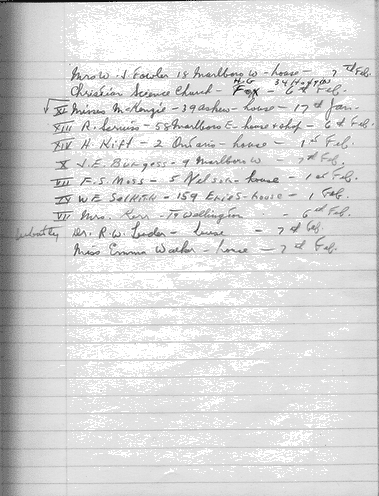 Mrs W. J Fowler 18 Marlboro W - house - 7th Feb.
H.G 34
Christian Science Church - Fox - 6th Feb.
√ XI Misses McKenzie - 39 Askew - house - 17th Jan.
XIII R. - 58 Marlboro E - house & shop - 6th Feb.
XIV H. Hitt - 2 Ontario - house - 1st Feb.
X J. E. Burgess - 9 Marlboro W - 7th Feb.
VII F. S. Moss - 5 Nelson - house - 1st Feb.
IX W E - 159 Erie S - house - 1 Feb.
VII Mrs. Kerr - 19 Wellington - 6th Feb.
Wheatley Dr. R. W. - house - 7th Feb.
Miss Emma Walker - house - 7th Feb.